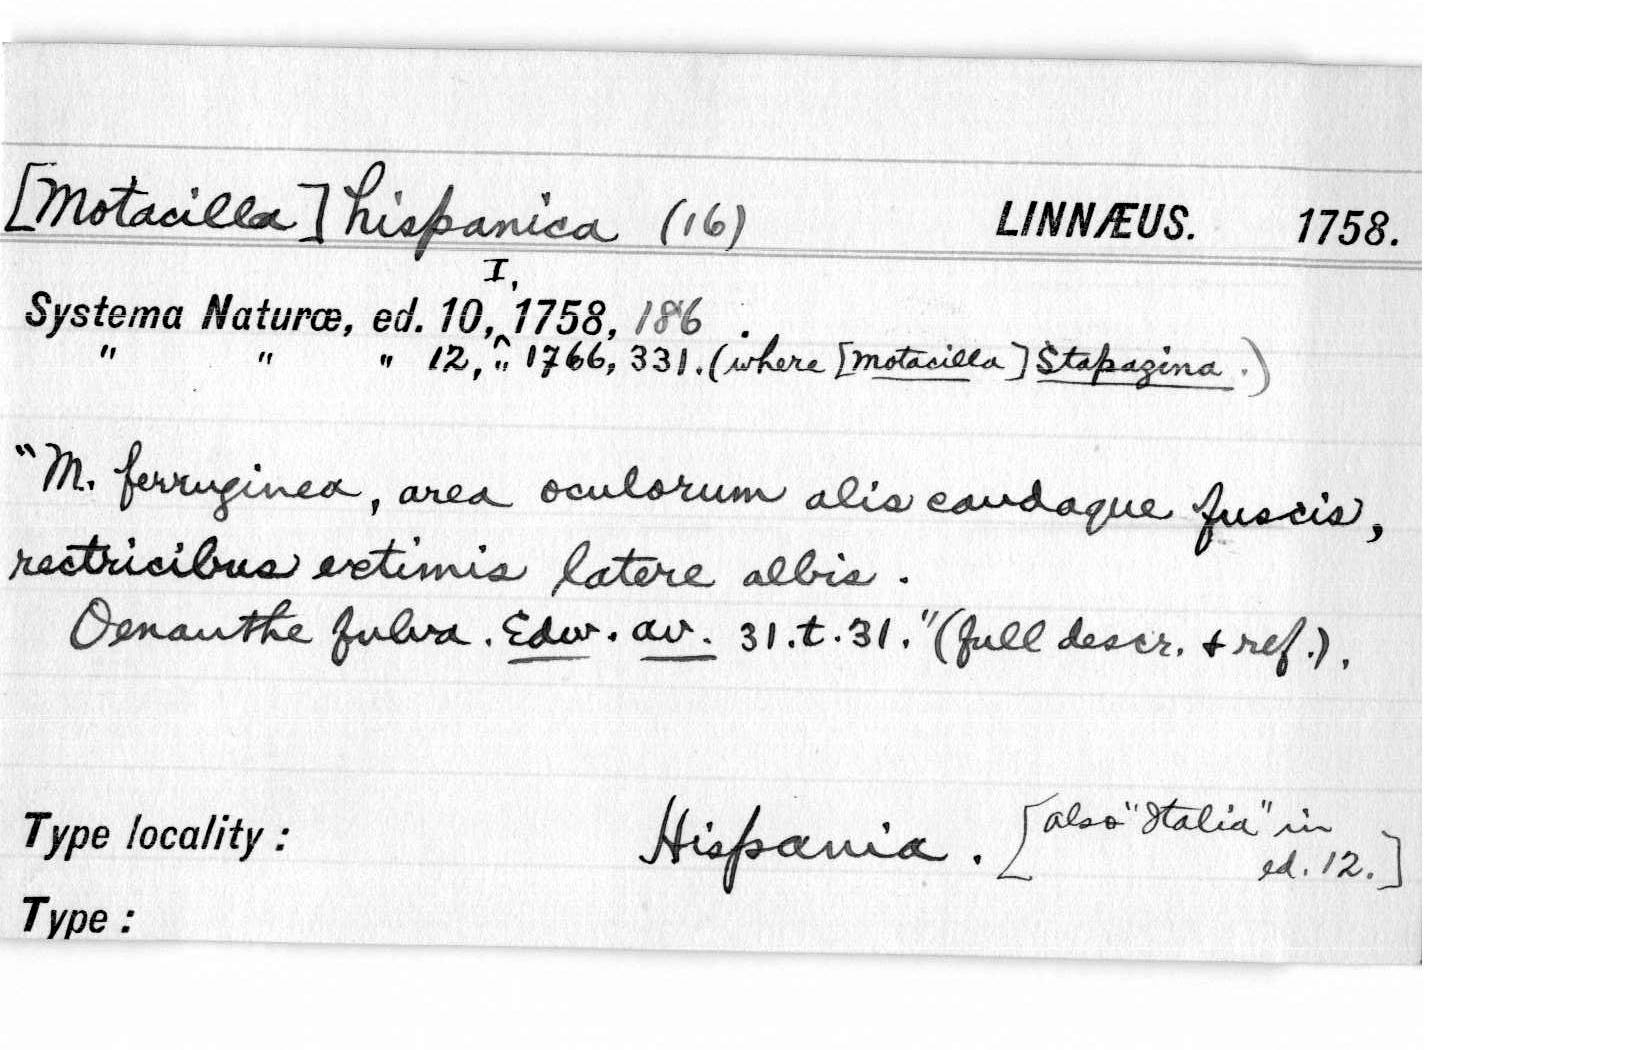 [Motacilla] hispanica (16) LINNÆUS. 1758.
I,
Systema Naturæ, ed. 10,^ 1758, 186 .
" " " 12, " 1766, 331. (where [Motacilla] Stapazina.)
"M. ferruginea, area oculorum alis caudaque fuscis,
rectricibus extimis latere albis.
Oenanthe fulva. Edw. av. 31. t. 31." (full descr. + ref.).
Type locality: Hispania. [also "Italia" in
ed. 12.]
Type: